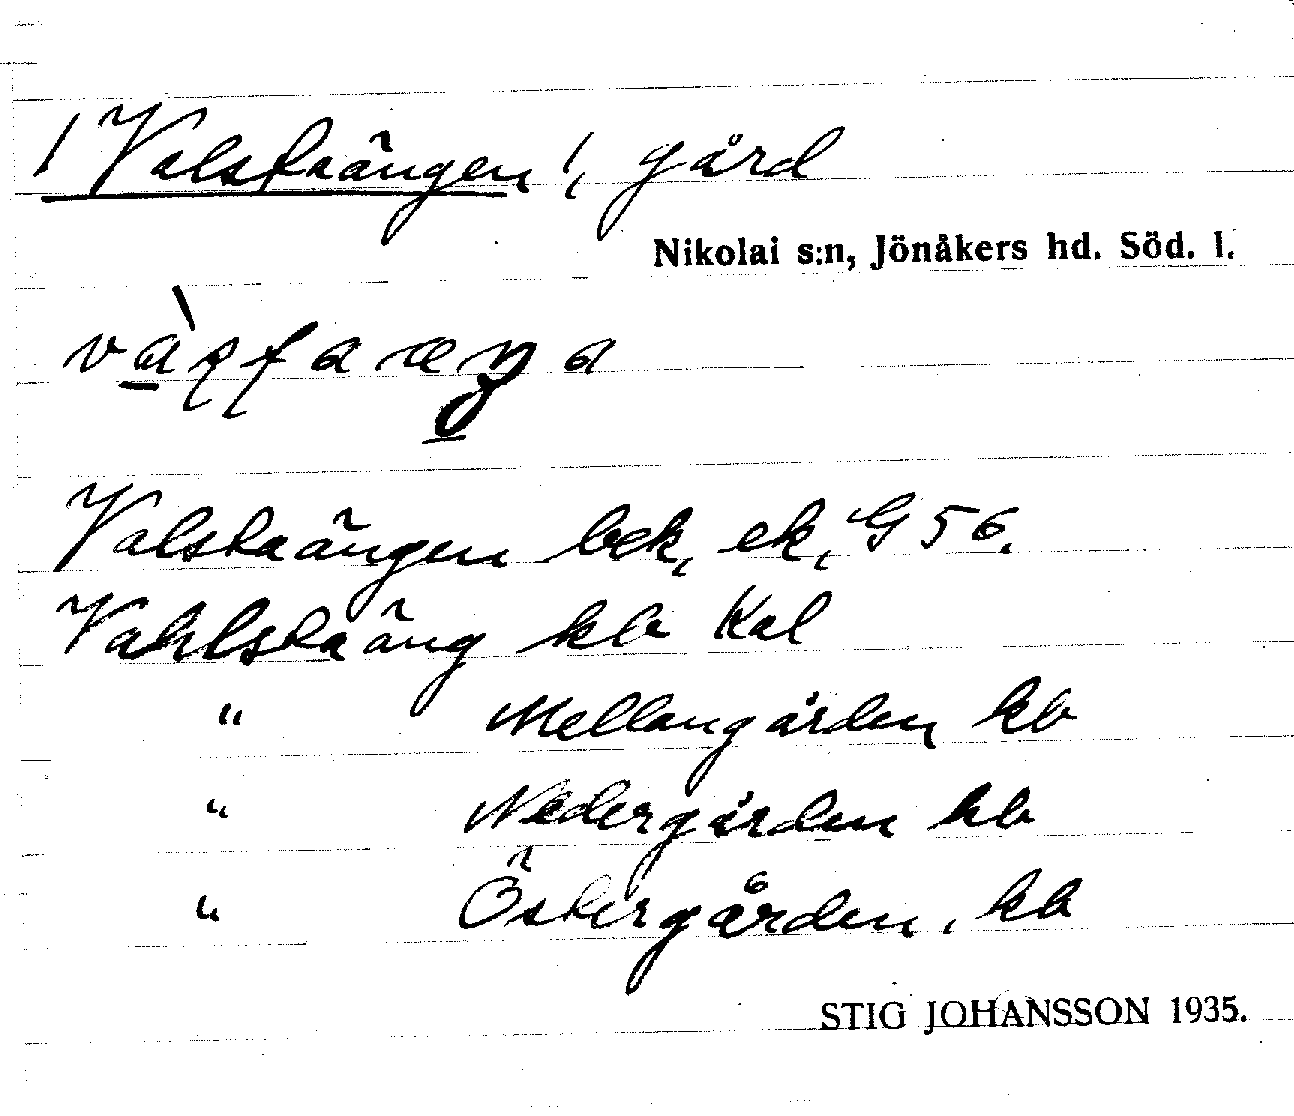 / Valstaängen /, gård
Nikolai s:n, Jönåkers hd. Söd. l.
Valstaängen bek, ek, G 56.
Vahlstaäng kb Kal
" Mellangården kb
" Nedergården kb
" Östergården, kb
STIG JOHANSSON 1935.